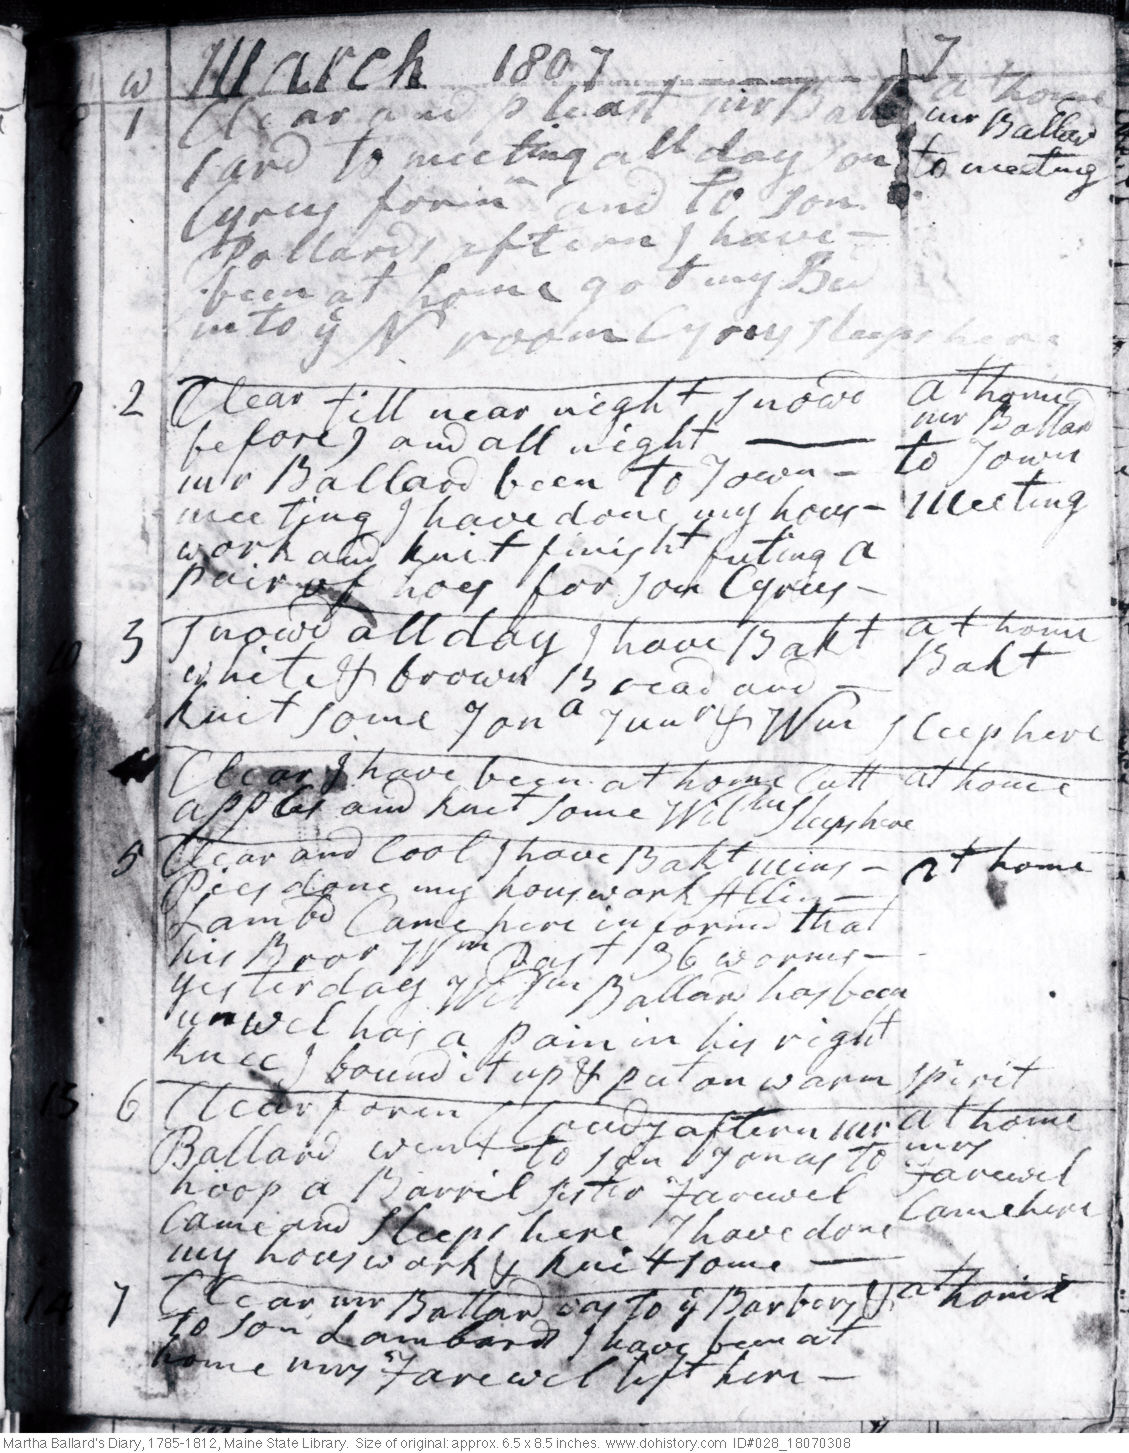 w March 1807 7
1 Clear and pleast mr Ball at home
lard to meeting all day son mr Ballard
Cyrus foren n and to son to meeting
Pollards aftern I have –
been at home got my Bed
into ÿ N room Cyrus sleeps here
9 2 Clear till near night snowd at home
before) and all night — mr Ballard
mr Ballard been to Town – to Town
meeting I have done my hous – Meeting
work and knit finisht futing a
pair of hoes for son Cyrus –
10 3 Snowd all day I have Bakt at home
white & brown Bread and – Bakt
knit some Jona Junr & Wm sleep here
4 Clear I have been at home Cutt at home
apples and knit some Willm sleeps here
5 Clear and Cool I have Bakt mins – at home
Pies done my hous work Allin –
Lambd Came here informd that
his Bror Wm Past 36 worms –
yesterday Willm Ballard has been
unwel has a pain in his right
knee I bound it up & put on warm spirit
13 6 Clear foren Cloudy aftern mr at home
Ballard went to son Jonas to mrs
hoop a Barril sister Farewel Farewel
Came and sleeps here I have done Came here
my hous work & knit some —
14 7 Clear mr Ballard was to ÿ Barbers & at home
to son Lambards I have been at
home mrs Farewel left here –
Martha Ballard's Diary, 1785-1812, Maine State Library. Size of original: approx. 6.5 x 8.5 inches. www.dohistory.com ID#028_18070308